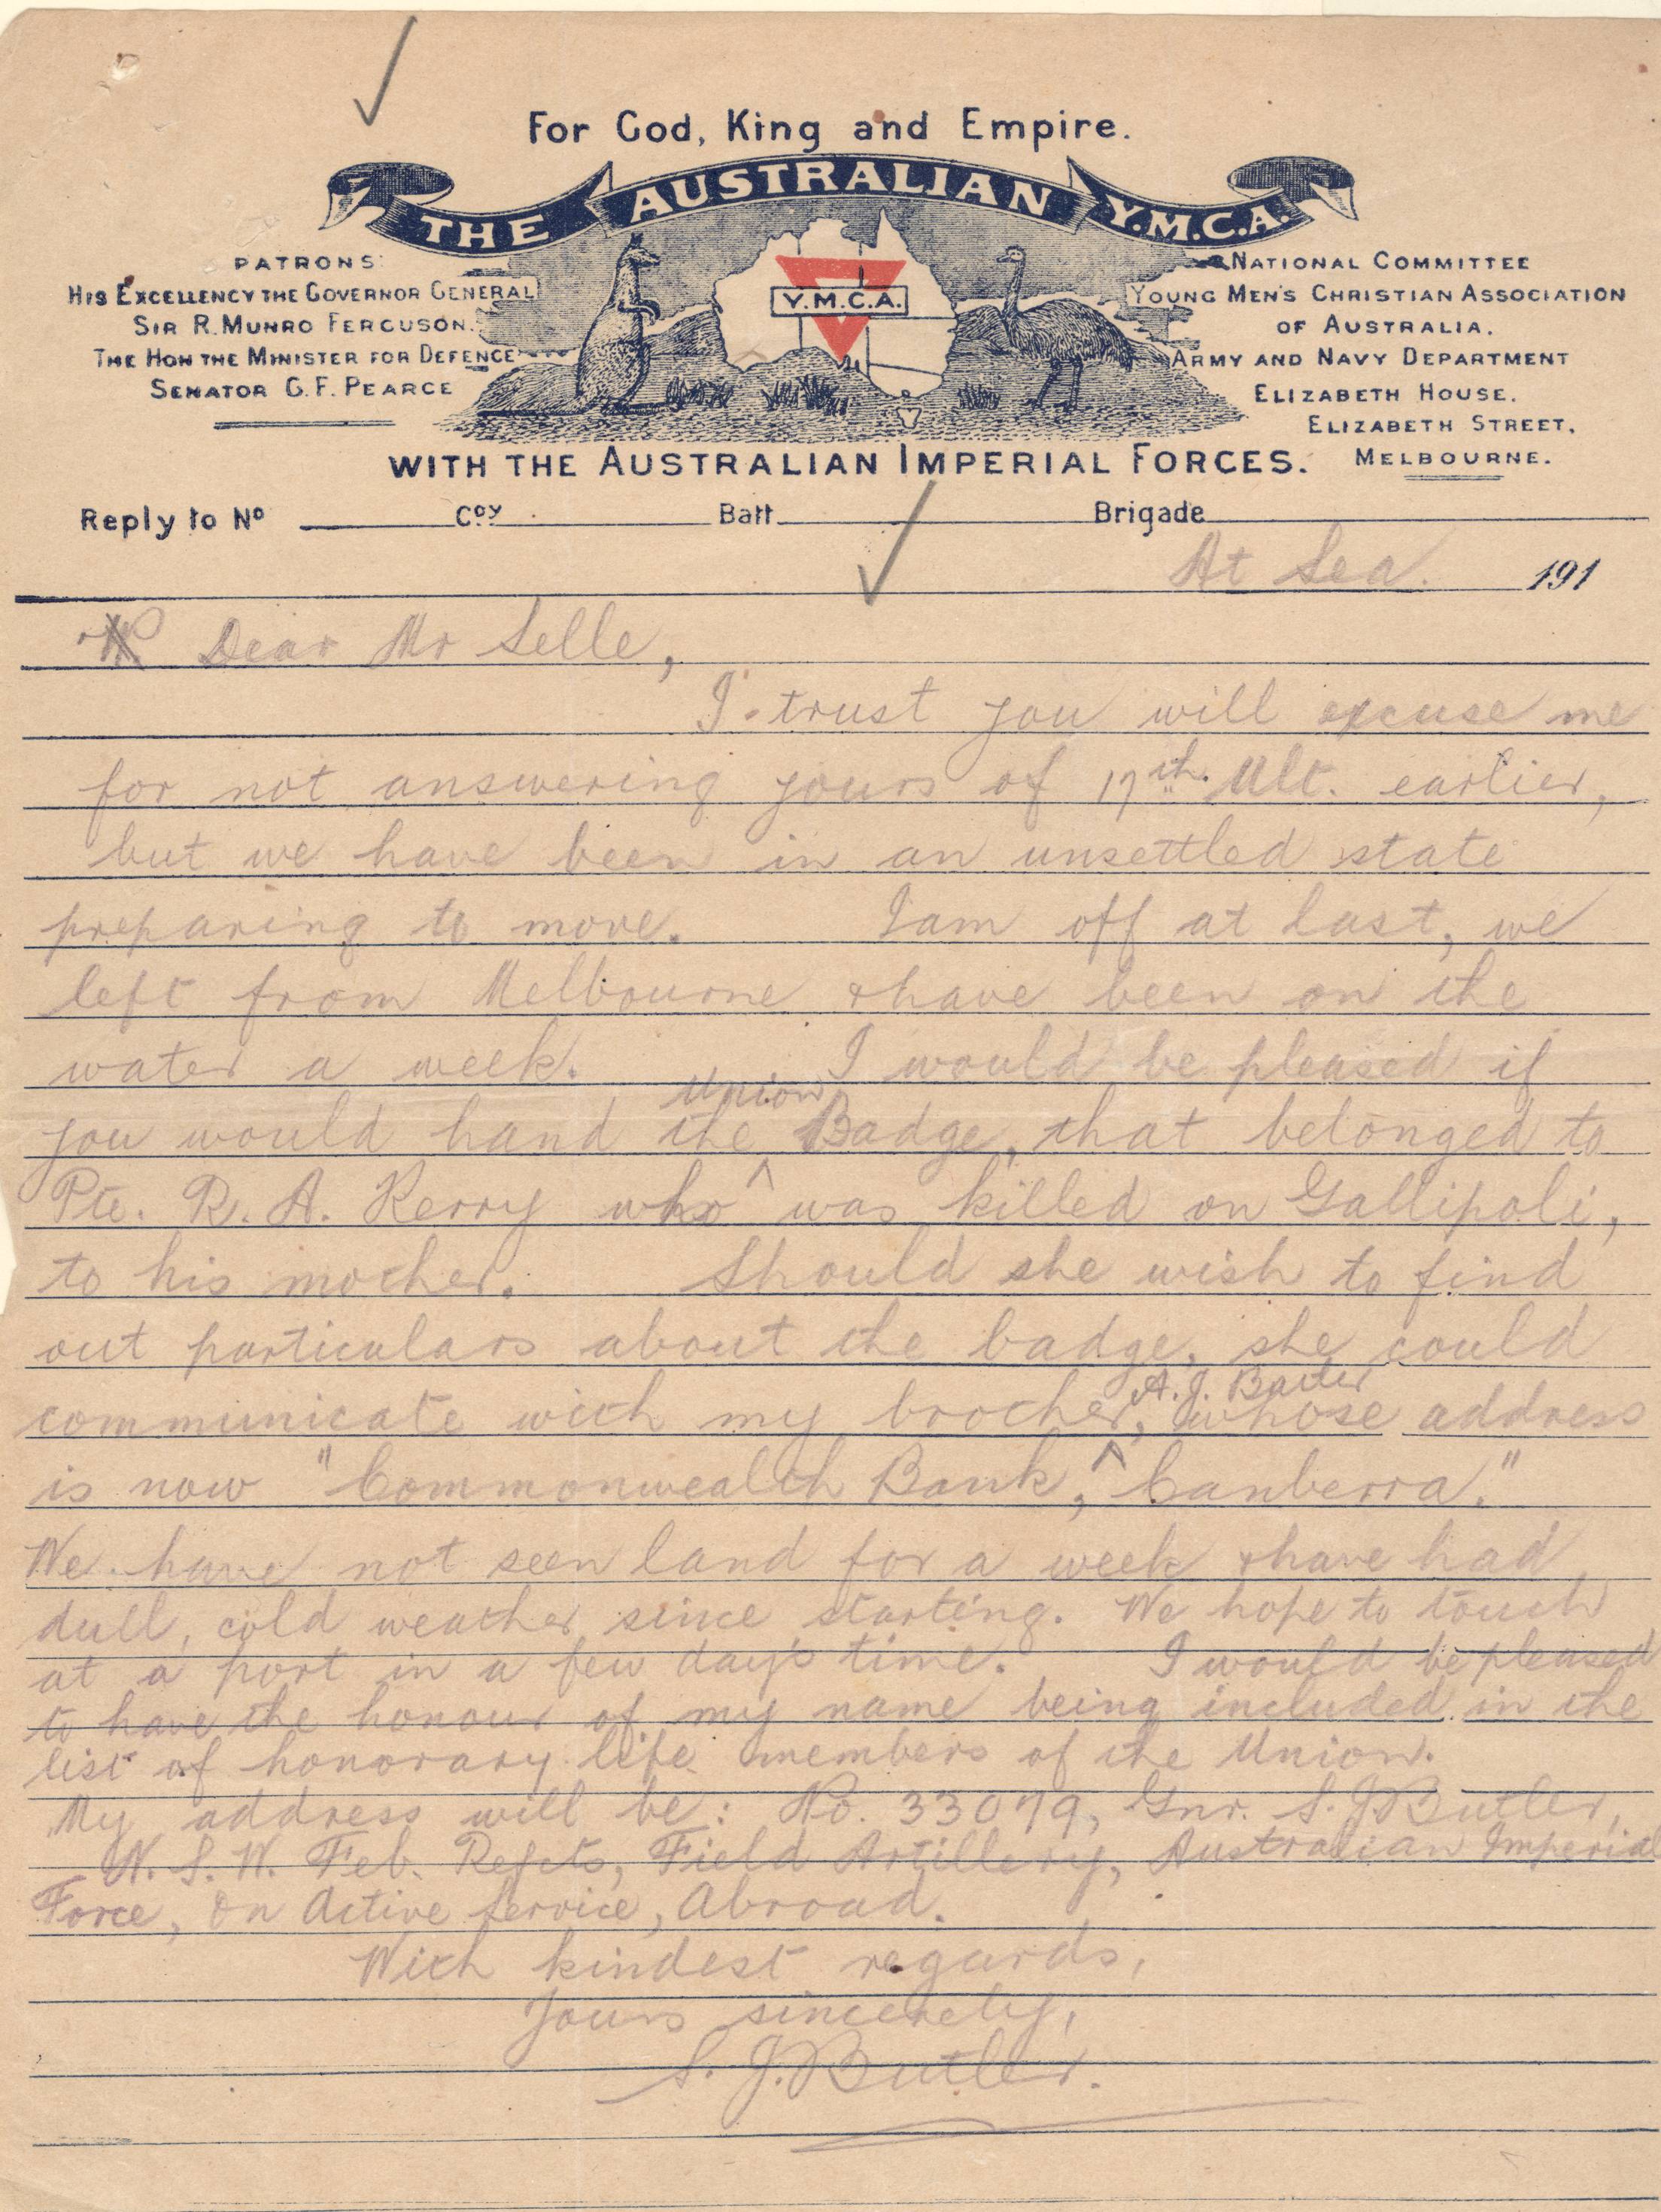 For God, King and Empire.
THE AUSTRALIAN Y.M.C.A.
PATRONS:
HIS EXCELLENCY THE GOVERNOR GENERAL
SIR R. MUNRO FERGUSON.
THE HON THE MINISTER FOR DEFENCE
SENATOR G. F. PEARCE
Y.M.C.A.
NATIONAL COMMITTEE
YOUNG MEN'S CHRISTIAN ASSOCIATION
OF AUSTRALIA.
ARMY AND NAVY DEPARTMENT
ELIZABETH HOUSE.
ELIZABETH STREET,
MELBOURNE.
WITH THE AUSTRALIAN IMPERIAL FORCES.
Reply to Nº Coy. Batt. Brigade
At Sea. 191
Dear Mr Selle,
I trust you will excuse me
for not answering yours of 17th. Ult. earlier,
but we have been in an unsettled state
preparing to move. I am off at last, we
left from Melbourne & have been on the
water a week. I would be pleased if
you would hand the Union Badge, that belonged to
Pte. R. A. Kerry who was killed on Gallipoli,
to his mother. Should she wish to find
out particulars about the badge, she could
communicate with my brother, A. J. whose address
is now "Commonwealth Bank, Canberra."
We have not seen land for a week & have had
dull, cold weather since starting. We hope to touch
at a port in a few day's time. I would be pleased
to have the honour of my name being included in the
list of honorary life members of the Union.
My address will be: No. 33079, Gnr. S. J. Butler,
N. S. W. Feb. Refcts, Field Artillery, Australian Imperial
Force, On Active Service, Abroad.
With kindest regards,
Yours sincerely,
S. J. Butler.